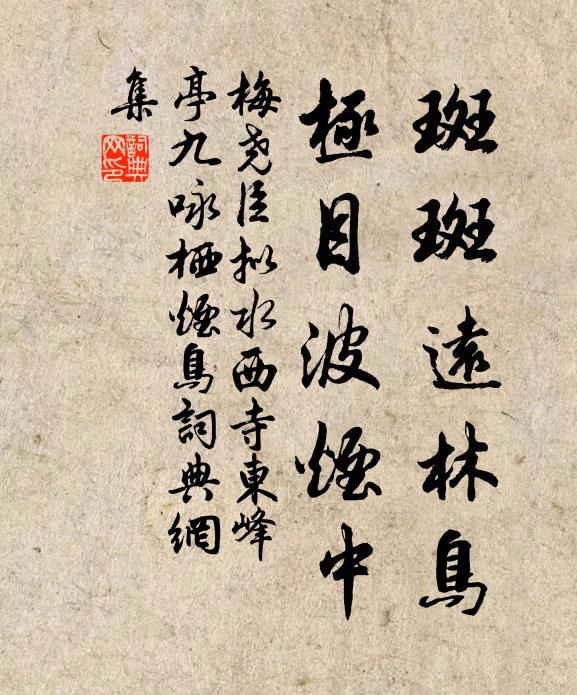 斑斑遠林鳥
極目波煙中
梅堯臣拟水西寺東峰
亭九咏栖煙鳥詞典網
集
詞典
网印